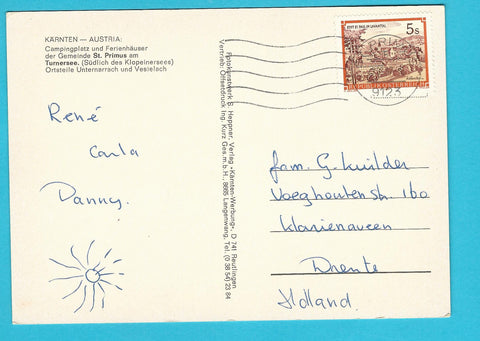 KÄRNTEN — AUSTRIA:
Campingplatz und Ferienhäuser
der Gemeinde St. Primus am
Turnersee. (Südlich des Klopeinersees)
Ortsteile Unternarrach und Vesielach
René
Carla
Danny.
Fotokunstwerk S. Heppner, Verlag »Kärnten-Werbung«, D 741 Reutlingen
Vertrieb: Offsetdruck Ing. Kurz Ges.m.b.H., 8665 Langenwang, Tel. (0 38 54) 23 84
STIFT ST. PAUL IM LAVANTTAL
5s
REPUBLIK ÖSTERREICH
9123
fam. G. Kuilder
Voeghoutenstr. 160
Klazienaveen
Drente
Holland.